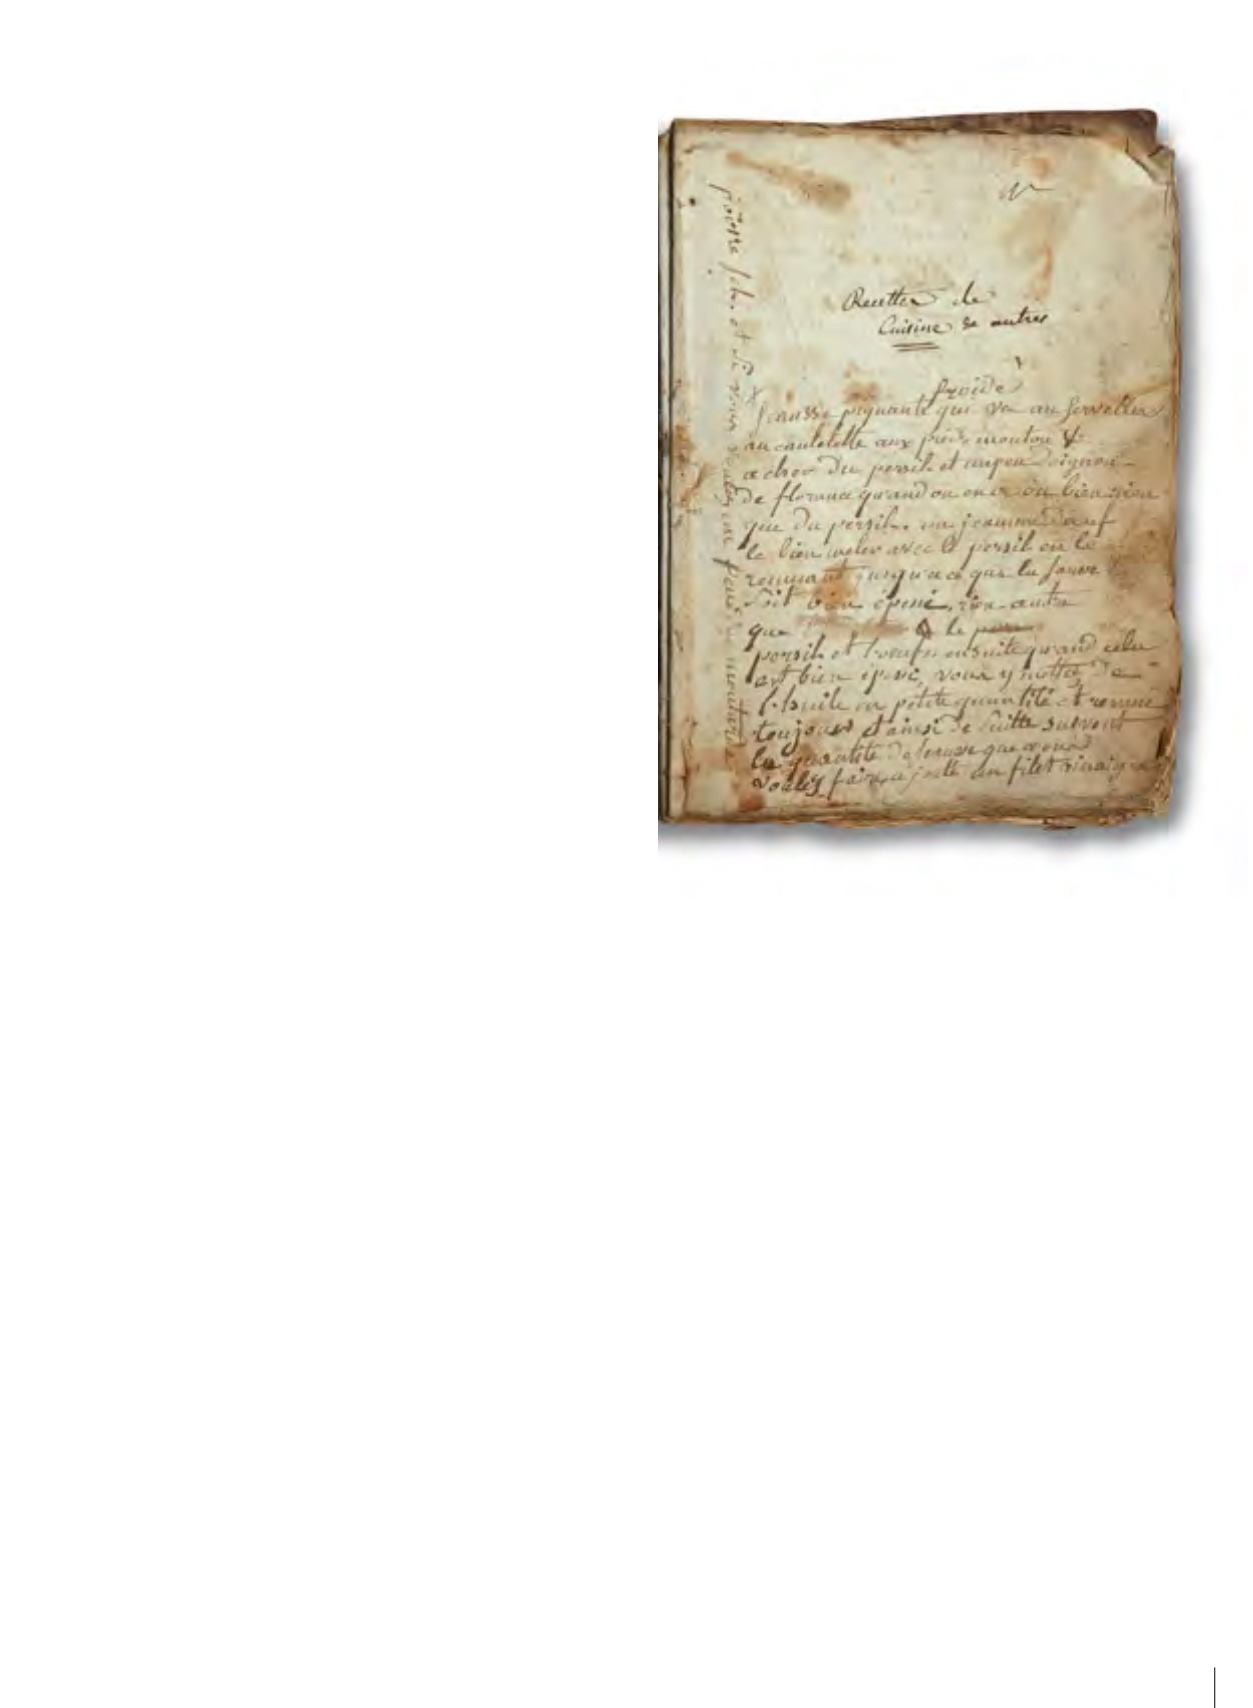 Recettes de
Cuisine & autres
froide
Seausse piquante qui va au servelles
au cautelette aux pieds mouton &
acher du persil et un peu doignon
de florance quand on en a ou bien rien
que du persil. un jeaune dœuf
le bien meler avec le persil en le
remuant jusqua ce que la sause
soit bien épesie, rien autre
que le
persil et l'oeuf, ensuite quand cela
est bien épesie, vous y mettez de
l'huile en petite quantité et remué
toujours et ainsi de suitte suivent
la quantité de seausse que vous
voulez faire, ajoutte un filet vinaigre
poivre sel. et si vous voulez un peu de moutarde